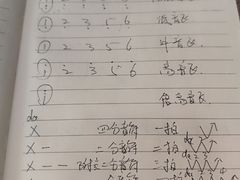 ① 2 3 5 6 低音区.
① 2 3 5 6 中音区.
① 2 3 5 6 高音区.
① 倍高音区
do
X 四分音符 一拍
X — 二分音符 二拍
X — — 附点二分音符 三拍